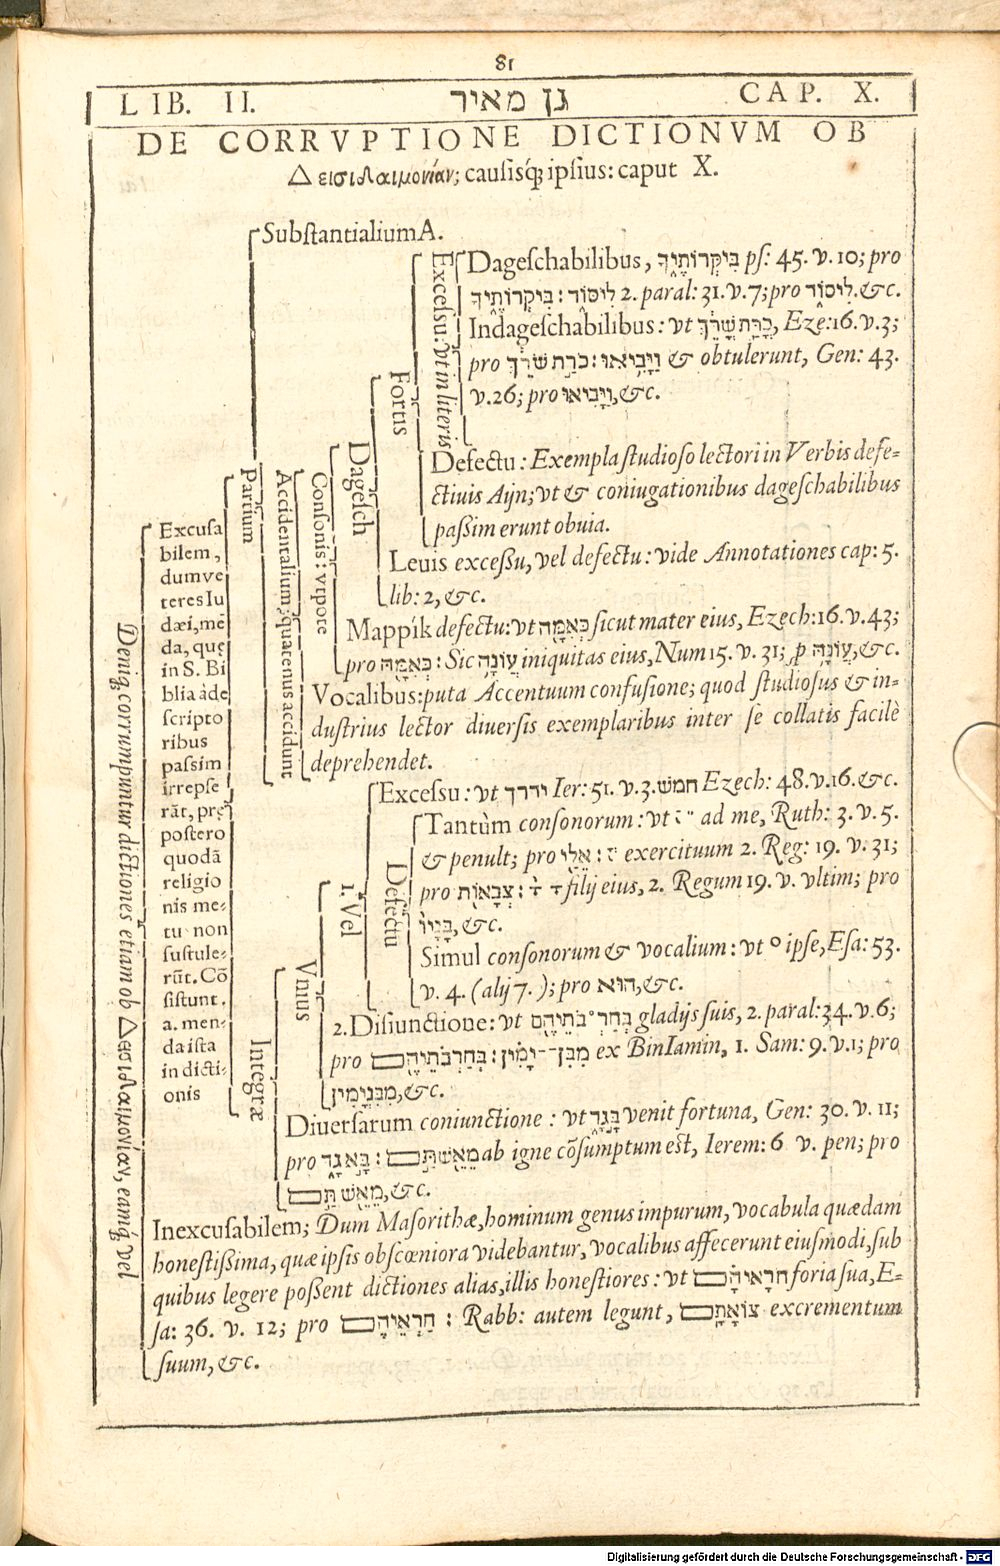 81
LIB. II. גן מאיר CAP. X.
DE CORRVPTIONE DICTIONVM OB
Δεισιδαιμονίαν; causisq́; ipsius: caput X.
Deniq́; corrumpuntur dictiones etiam ob Δεισιδαιμονίαν, eamq́; vel
Excusa
bilem,
dum ve
teres Iu
dæi, mẽ
da, quę
in S. Bi
blia à de
scripto
ribus
passim
irrepse
rãt, prę
postero
quodã
religio
nis me-
tu non
sustule-
rũt. Cõ
sistunt.
a. men-
da ista
in dicti-
onis
Partium
Substantialium A.
Accidentalium; quatenus accidunt
Consonis: vt pote
Dagesch
Fortis
Excessu: vt in literis
Dageschabilibus, בִּיקְּרוֹתֶיךָ ps: 45. v. 10; pro
בִּיקְרוֹתֶיךָ : לִיסּוֹד 2. paral: 31. v. 7; pro לִיסוֹד. &c.
Indageschabilibus: vt כָרַּת שָׁרֵּךְ, Eze: 16. v. 3;
pro כרַת שֹׁרֵךְ : וַיָּבִיאּוּ & obtulerunt, Gen: 43.
v. 26; pro וַיָּבִיאוּ, &c.
Defectu: Exempla studioso lectori in Verbis defe-
ctiuis Ajn; vt & coniugationibus dageschabilibus
passim erunt obuia.
Leuis excessu, vel defectu: vide Annotationes cap: 5.
lib: 2, &c.
Mappík defectu: vt כְּאִמָה sicut mater eius, Ezech: 16. v. 43;
pro כְּאִמָּהּ : Sic עֲוֹנָה iniquitas eius, Num 15. v. 31; ꝓ עֲוֹנָהּ, &c.
Vocalibus: puta Accentuum confusione; quod studiosus & in-
dustrius lector diuersis exemplaribus inter se collatis facilè
deprehendet.
Integræ
Vnius
1. Vel
Excessu: vt ידרך Ier: 51. v. 3. חמש Ezech: 48. v. 16. &c.
Defectu
Tantùm consonorum: vt ֵ ַ ad me, Ruth: 3. v. 5.
& penult; pro אֵלַי : exercituum 2. Reg: 19. v. 31;
pro צְבָאוֹת : filij eius, 2. Regum 19. v. vltim; pro
בָּנָיו, &c.
Simul consonorum & vocalium: vt ° ipse, Esa: 53.
v. 4. (alij 7.); pro הוּא, &c.
2. Disiunctione: vt בְּחַר־בֹתֵיהֶם gladijs suis, 2. paral: 34. v. 6;
pro בְּחַרְבֹתֵיהֶם : מִבִּן־־יָמִין ex BinIamin, 1. Sam: 9. v. 1; pro
מִבִּנְיָמִין, &c.
Diuersarum coniunctione: vt בָּגָד venit fortuna, Gen: 30. v. 11;
pro בָּא גָד : מֵאֶשְׁתַּם ab igne cõsumptum est, Ierem: 6 v. pen; pro
מֵאֵשׁ תַּם, &c.
Inexcusabilem; Dum Masorithæ, hominum genus impurum, vocabula quædam
honestissima, quæ ipsis obscœniora videbantur, vocalibus affecerunt eiusmodi, sub
quibus legere possent dictiones alias, illis honestiores: vt חרָאיהָם foria sua, E-
sa: 36. v. 12; pro חַרְאֵיהֶם : Rabb: autem legunt, צוֹאָתָם excrementum
suum, &c.
Digitalisierung gefördert durch die Deutsche Forschungsgemeinschaft - DFG